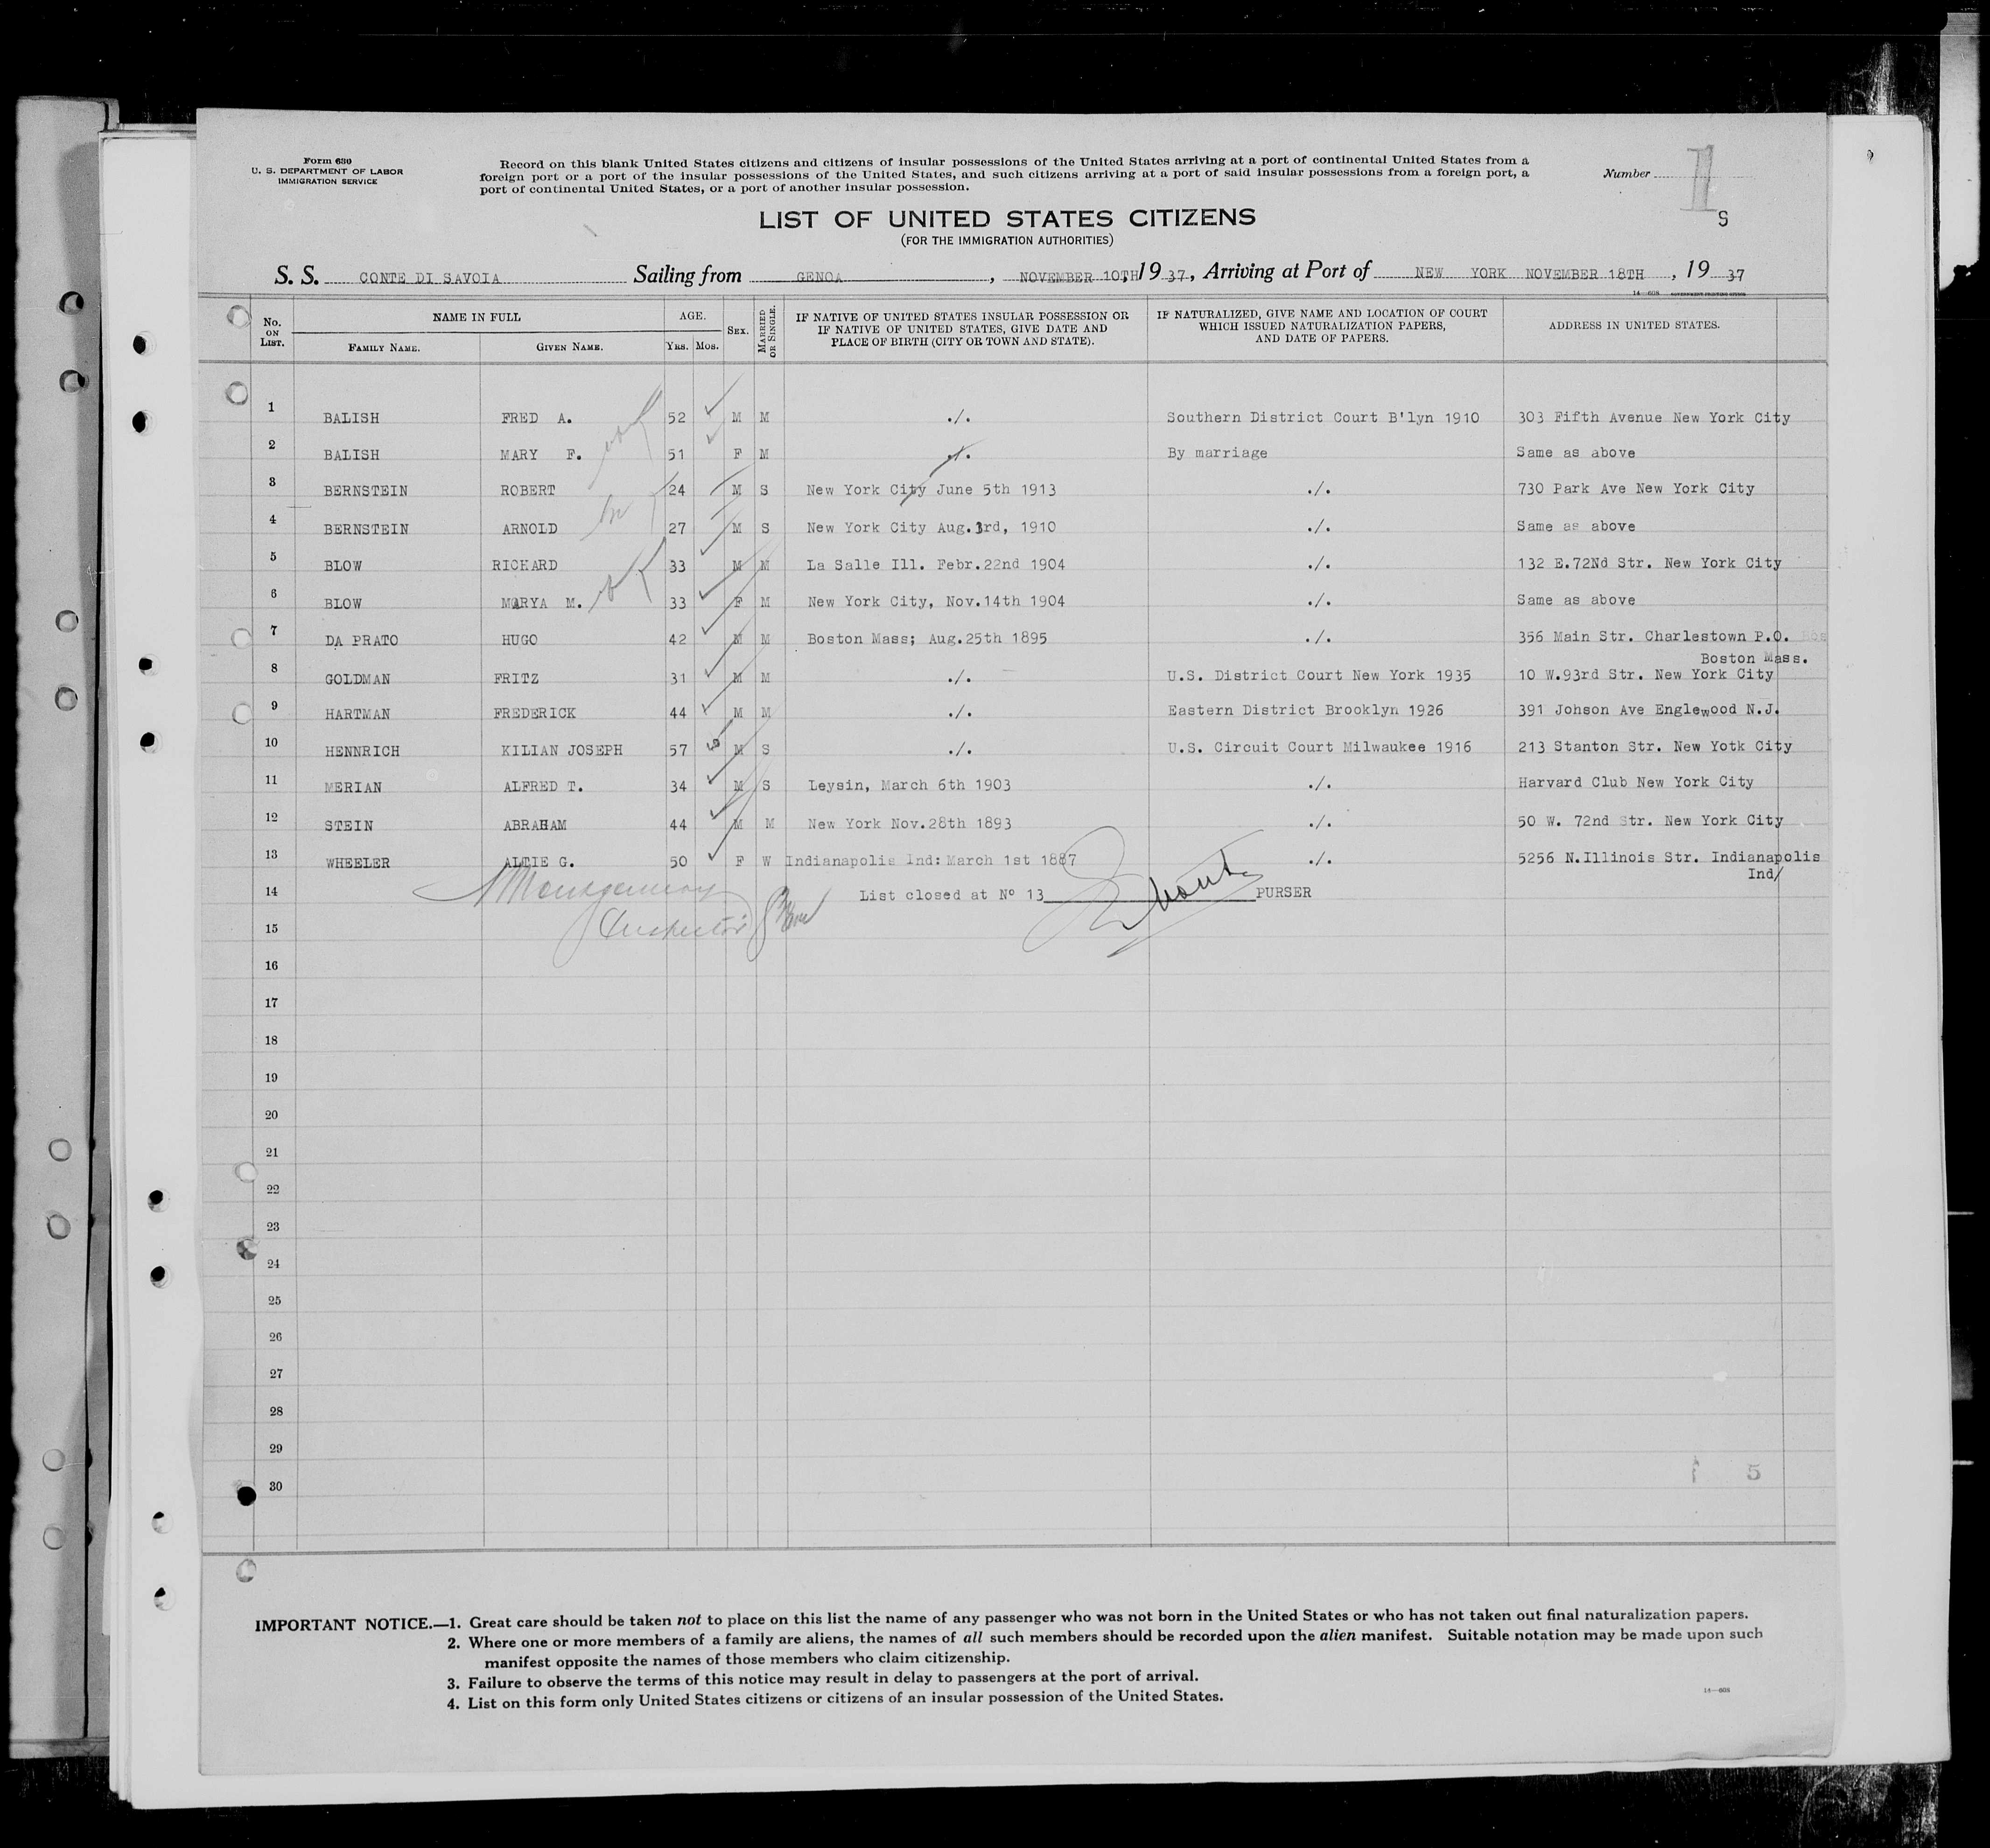 Form 630
U. S. DEPARTMENT OF LABOR
IMMIGRATION SERVICE
Record on this blank United States citizens and citizens of insular possessions of the United States arriving at a port of continental United States from a
foreign port or a port of the insular possessions of the United States, and such citizens arriving at a port of said insular possessions from a foreign port, a
port of continental United States, or a port of another insular possession.
Number 1
S
LIST OF UNITED STATES CITIZENS
(FOR THE IMMIGRATION AUTHORITIES)
S. S. CONTE DI SAVOIA Sailing from GENOA, NOVEMBER 10TH 1937, Arriving at Port of NEW YORK NOVEMBER 18TH, 1937
14—608 GOVERNMENT PRINTING OFFICE
No. ON LIST. NAME IN FULL FAMILY NAME. GIVEN NAME. AGE. YRS. MOS. SEX. MARRIED OR SINGLE. IF NATIVE OF UNITED STATES INSULAR POSSESSION OR IF NATIVE OF UNITED STATES, GIVE DATE AND PLACE OF BIRTH (CITY OR TOWN AND STATE). IF NATURALIZED, GIVE NAME AND LOCATION OF COURT WHICH ISSUED NATURALIZATION PAPERS, AND DATE OF PAPERS. ADDRESS IN UNITED STATES.
1 BALISH FRED A. 52 M M ./. Southern District Court B'lyn 1910 303 Fifth Avenue New York City
2 BALISH MARY F. 51 F M ./. By marriage Same as above
3 BERNSTEIN ROBERT 24 M S New York City June 5th 1913 ./. 730 Park Ave New York City
4 BERNSTEIN ARNOLD 27 M S New York City Aug.3rd, 1910 ./. Same as above
5 BLOW RICHARD 33 M M La Salle Ill. Febr.22nd 1904 ./. 132 E.72Nd Str. New York City
6 BLOW MARYA M. 33 F M New York City, Nov.14th 1904 ./. Same as above
7 DA PRATO HUGO 42 M M Boston Mass; Aug.25th 1895 ./. 356 Main Str. Charlestown P.O.
Boston Mass.
8 GOLDMAN FRITZ 31 M M ./. U.S. District Court New York 1935 10 W.93rd Str. New York City
9 HARTMAN FREDERICK 44 M M ./. Eastern District Brooklyn 1926 391 Johson Ave Englewood N.J.
10 HENNRICH KILIAN JOSEPH 57 M S ./. U.S. Circuit Court Milwaukee 1916 213 Stanton Str. New Yotk City
11 MERIAN ALFRED T. 34 M S Leysin, March 6th 1903 ./. Harvard Club New York City
12 STEIN ABRAHAM 44 M M New York Nov.28th 1893 ./. 50 W. 72nd Str. New York City
13 WHEELER ALTIE G. 50 F W Indianapolis Ind: March 1st 1887 ./. 5256 N.Illinois Str. Indianapolis
Ind/
14 Montgomery List closed at Nº 13 PURSER
15 Inspector
16
17
18
19
20
21
22
23
24
25
26
27
28
29
30
5
IMPORTANT NOTICE.—1. Great care should be taken not to place on this list the name of any passenger who was not born in the United States or who has not taken out final naturalization papers.
2. Where one or more members of a family are aliens, the names of all such members should be recorded upon the alien manifest. Suitable notation may be made upon such
manifest opposite the names of those members who claim citizenship.
3. Failure to observe the terms of this notice may result in delay to passengers at the port of arrival.
4. List on this form only United States citizens or citizens of an insular possession of the United States.
14—608